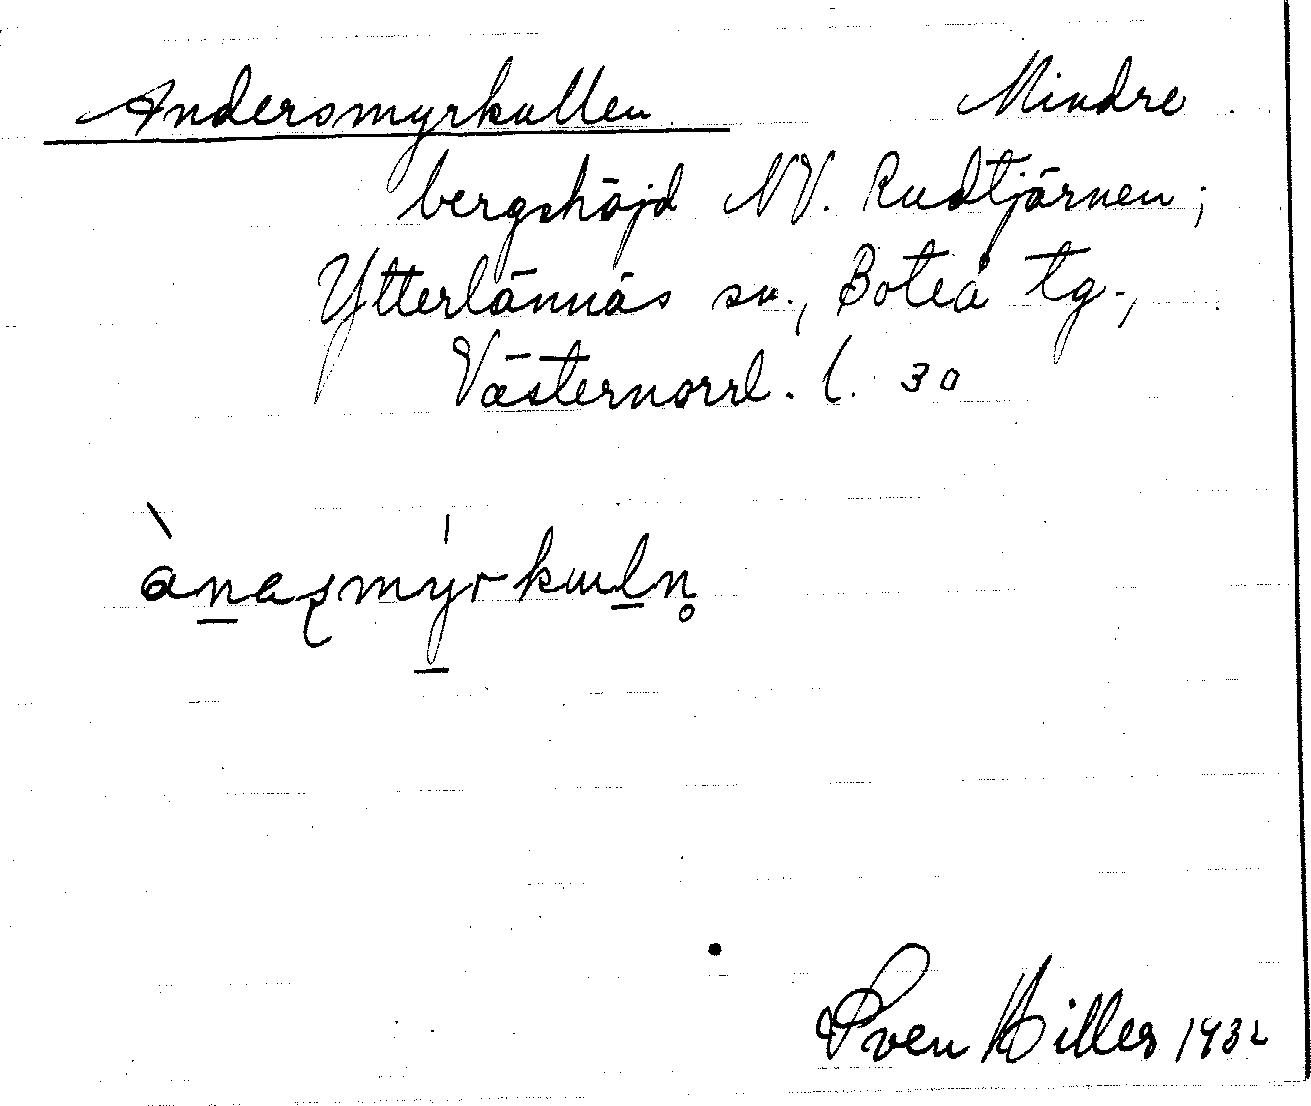 Andersmyrkullen Mindre
bergshöjd NV. Rudtjärnen;
Ytterlännäs sn., Boteå tg.,
Västernorrl. l. 30
Sven Hilles 1932